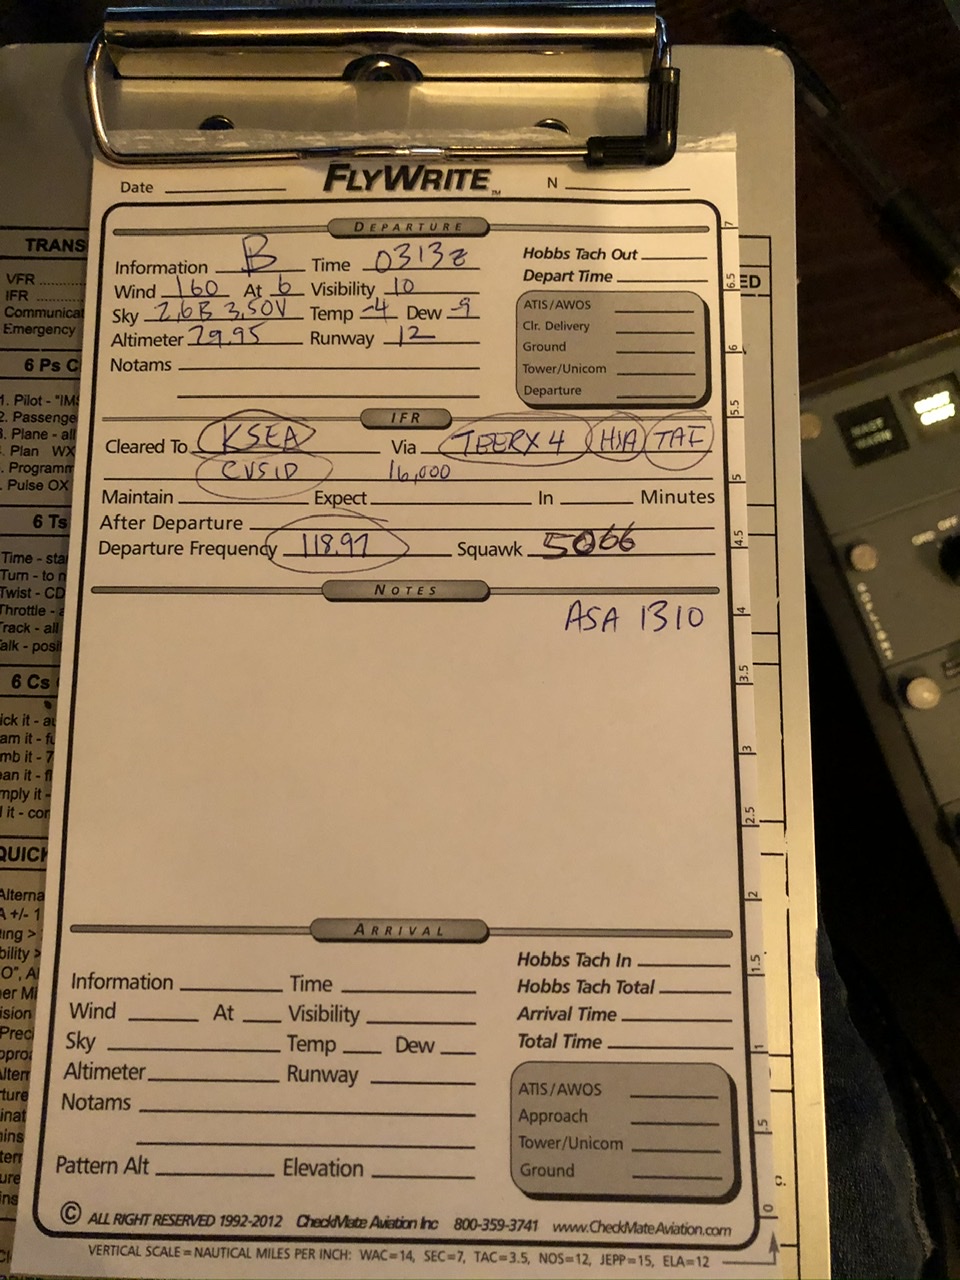 Date FLYWRITE™ N
DEPARTURE
Information B Time 0313z
Wind 160 At 6 Visibility 10
Sky 2,6B 3,5OV Temp -4 Dew -9
Altimeter 29.95 Runway 12
Notams
Hobbs Tach Out
Depart Time
ATIS/AWOS
Clr. Delivery
Ground
Tower/Unicom
Departure
IFR
Cleared To KSEA Via TEERX4 HIA TAF
CVSID 16,000
Maintain Expect In Minutes
After Departure
Departure Frequency 118.97 Squawk 5066
NOTES
ASA 1310
ARRIVAL
Information Time
Wind At Visibility
Sky Temp Dew
Altimeter Runway
Notams
Pattern Alt Elevation
Hobbs Tach In
Hobbs Tach Total
Arrival Time
Total Time
ATIS/AWOS
Approach
Tower/Unicom
Ground
© ALL RIGHT RESERVED 1992-2012 CheckMate Aviation Inc 800-359-3741 www.CheckMateAviation.com
VERTICAL SCALE = NAUTICAL MILES PER INCH: WAC=14, SEC=7, TAC=3.5, NOS=12, JEPP=15, ELA=12
7
6.5
6
5.5
5
4.5
4
3.5
3
2.5
2
1.5
1
.5
0
TRANS
VFR
IFR
Communicat
Emergency
6 Ps C
1. Pilot - "IMS
2. Passenge
3. Plane - all
4. Plan WX
5. Programm
6. Pulse OX
6 Ts
Time - sta
Turn - to n
Twist - CD
Throttle -
Track - all
Talk - posi
6 Cs
QUICK
ED
OFF